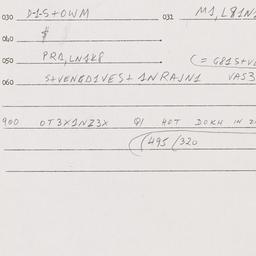 030 D-1-S+OWM 031 M1, L81N1
040 $
050 PRA, LN1K8 (= G81S+V
060 S+VENGD1VES+ 1NRAJN1 VAS3
900 OT3X1NZ3X Q1 HOT DOKH IN
(495/320